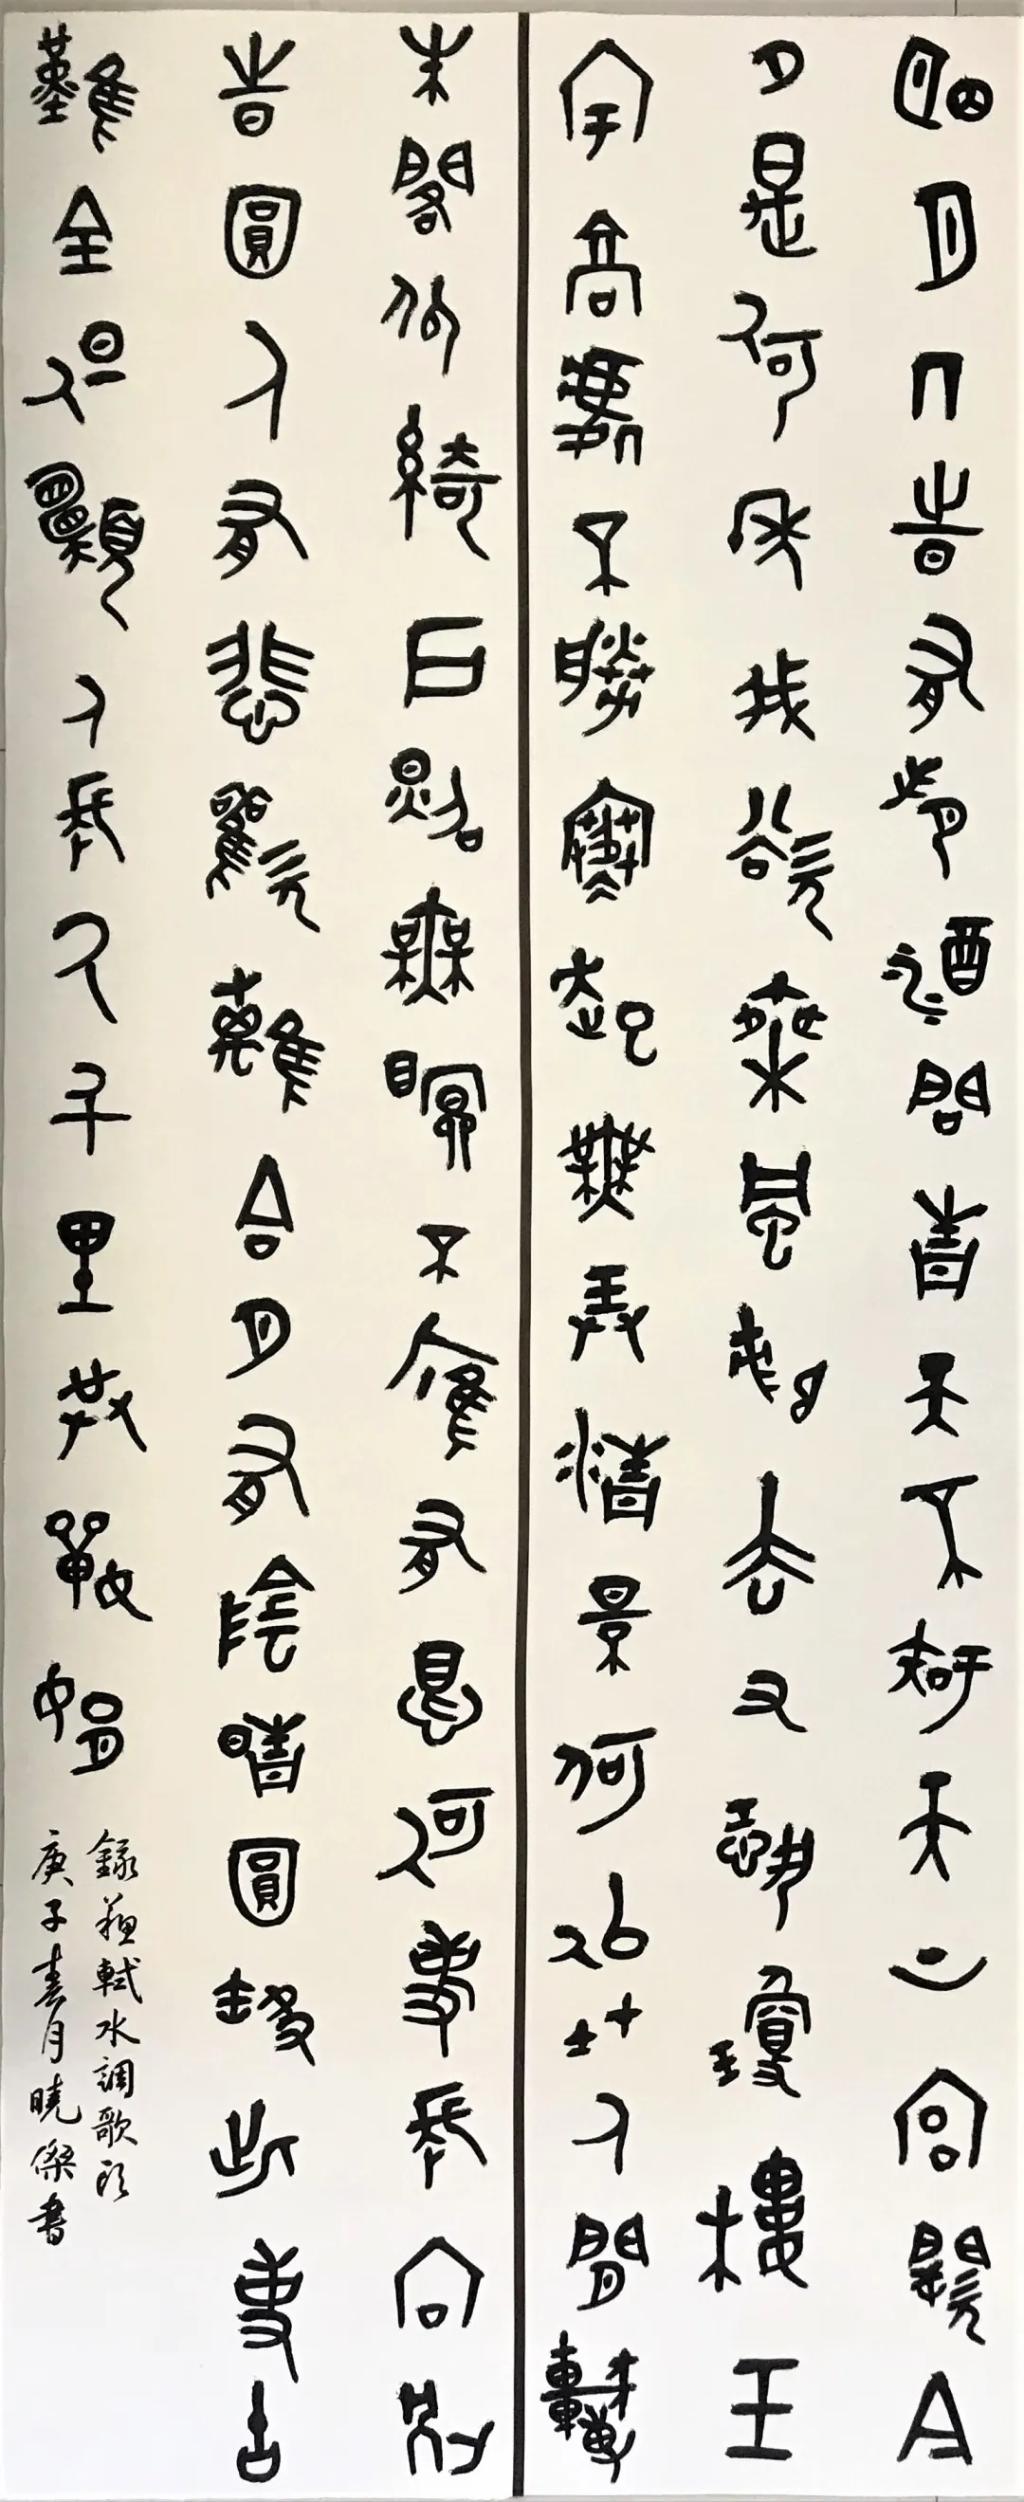 明月几時有把酒問青天不知天上宮闕今
夕是何年我欲乘風歸去又恐瓊樓玉
宇高處不勝寒起舞弄清影何似在人間轉
朱閣低綺戶照無眠不應有恨何事長向別
時圓人有悲歡離合月有陰晴圓缺此事古
難全但願人長久千里共嬋娟
錄蘇軾水調歌頭
庚子春月曉傑書